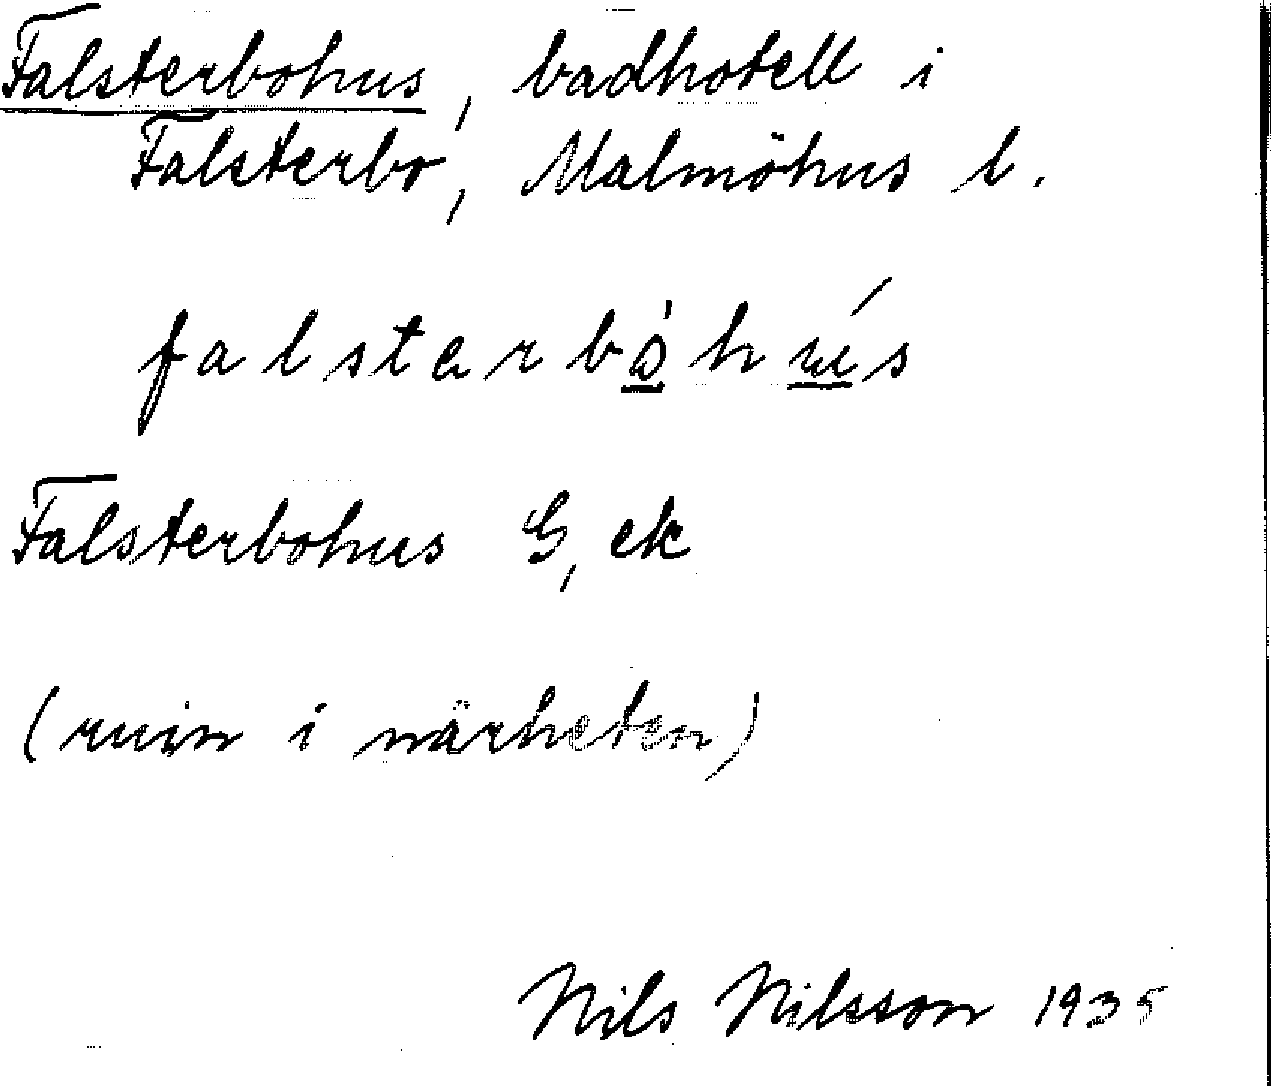 Falsterbohus, badhotell i
Falsterbo, Malmöhus l.
falsterbòhús
Falsterbohus G, ek
(ruin i närheten)
Nils Nilsson 1935